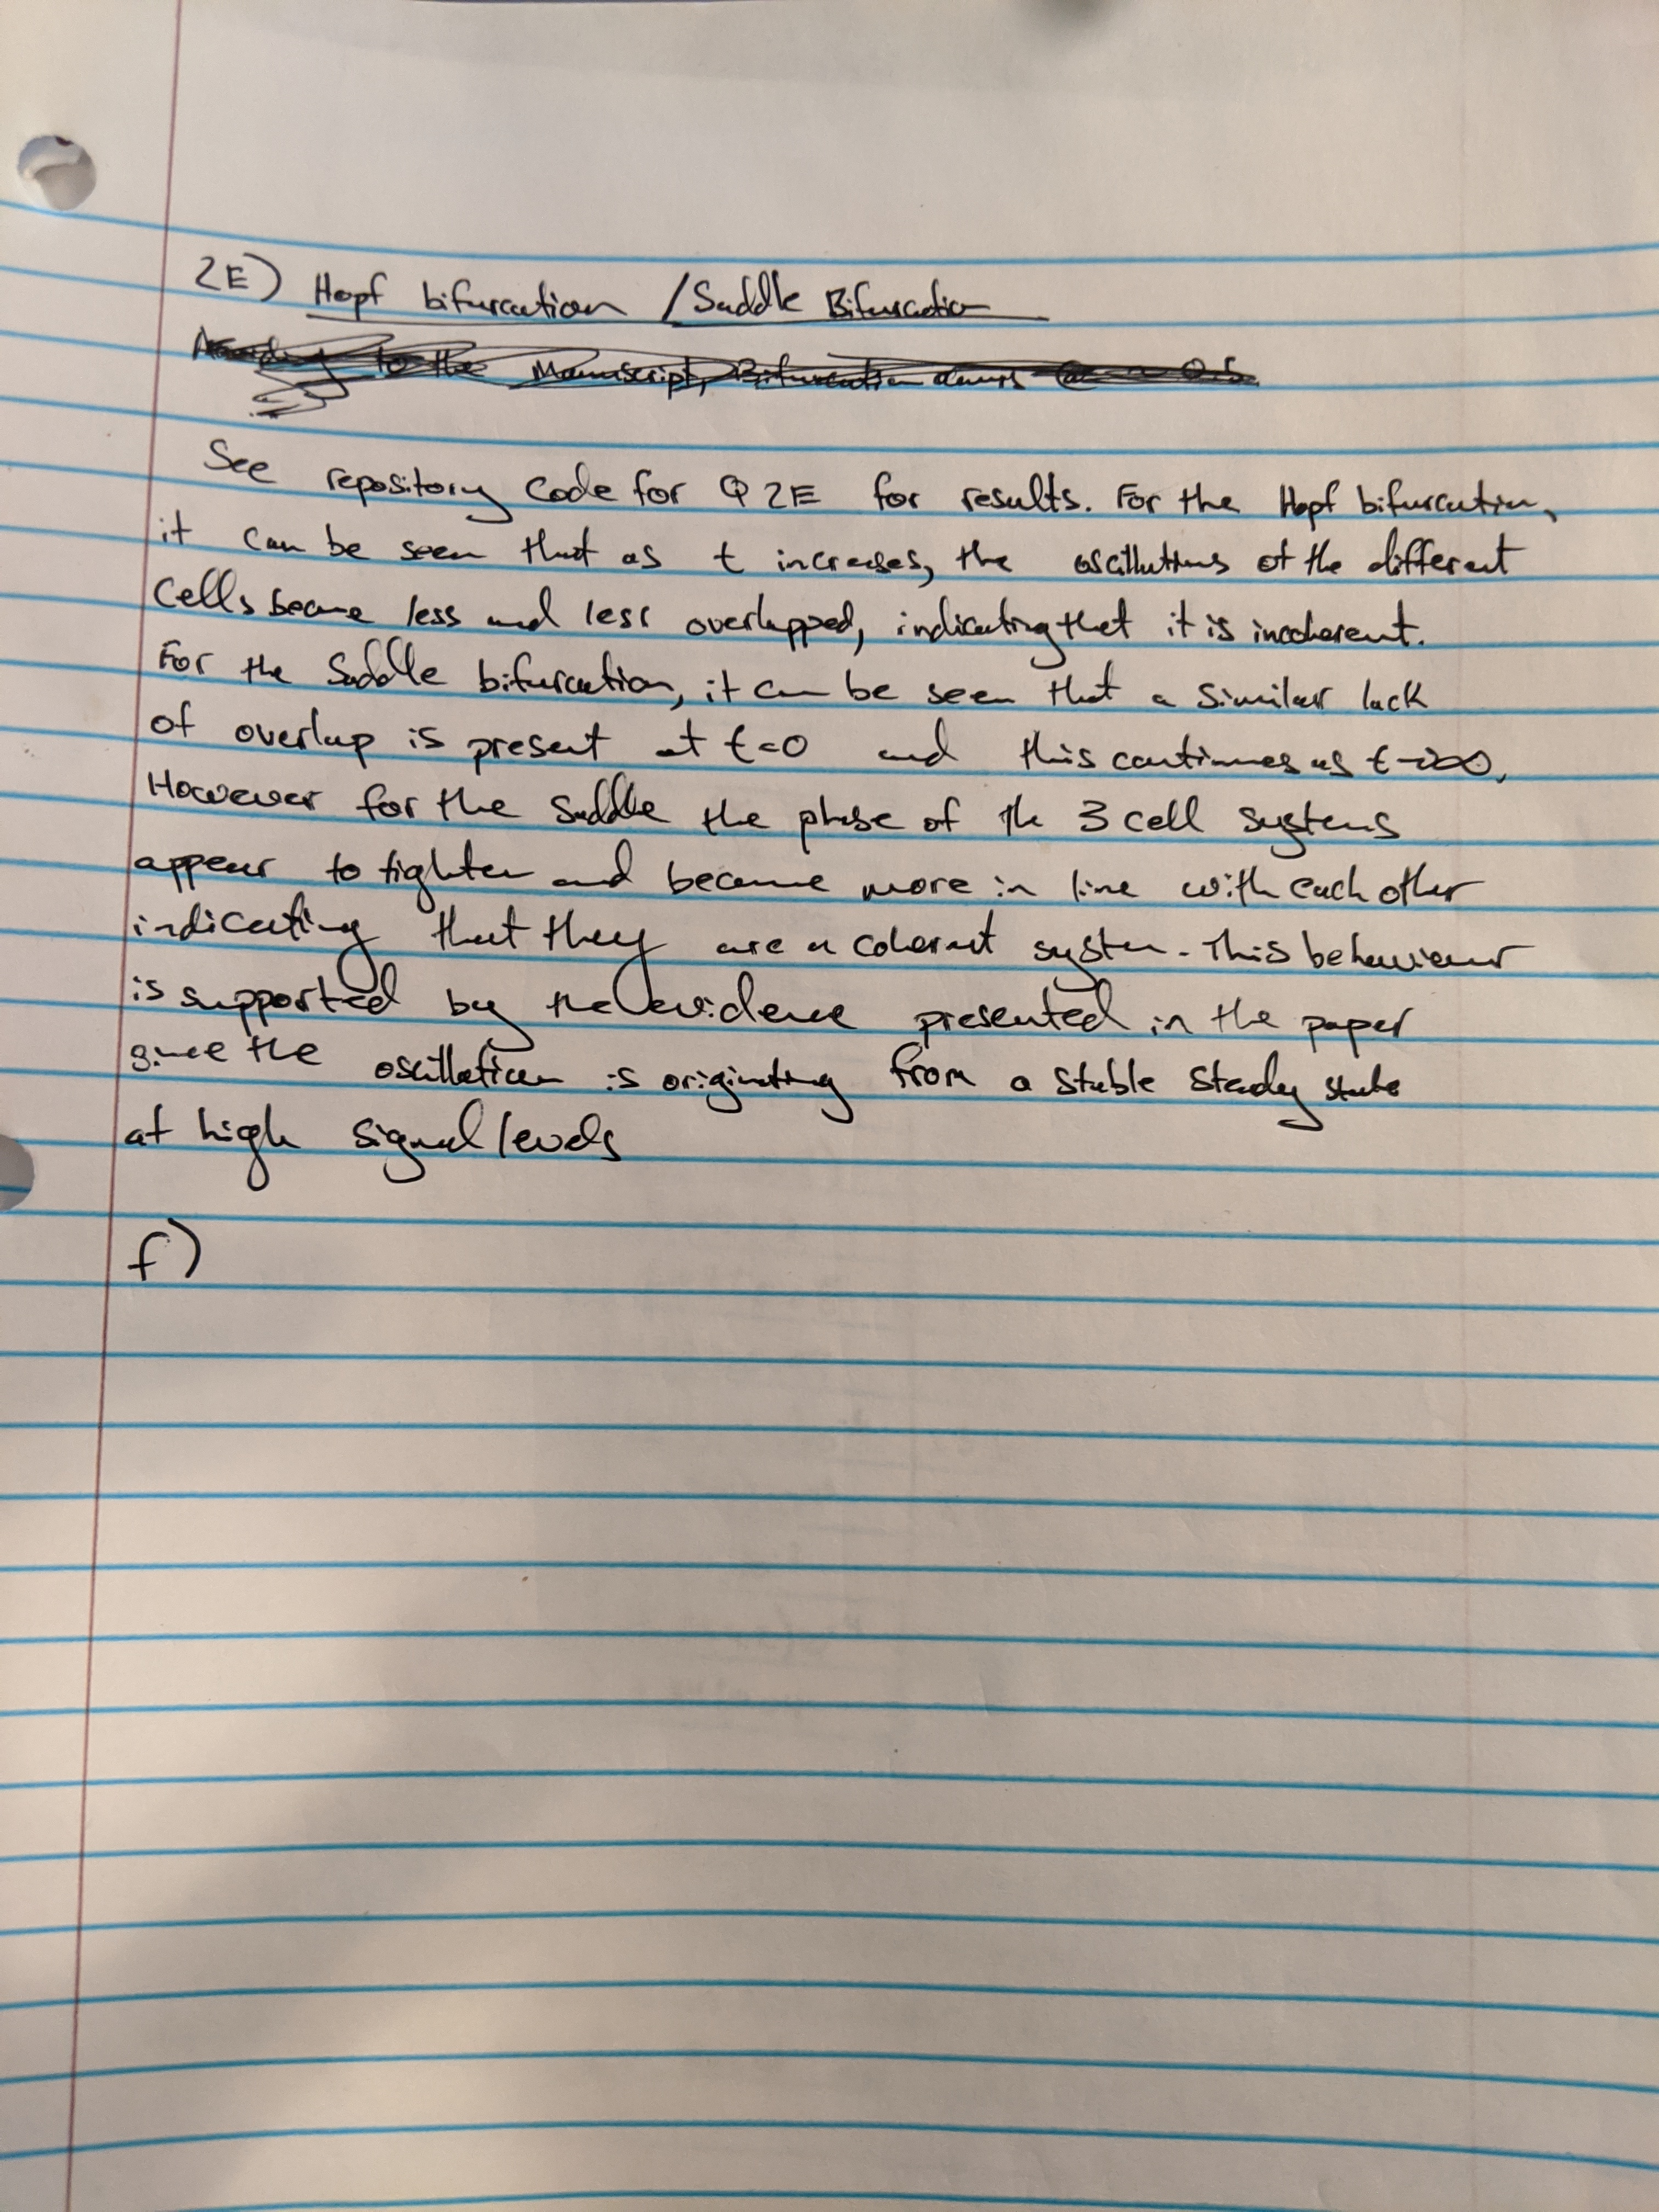 2E) Hopf bifurcation / Saddle Bifurcation
to the Manuscript, Bifurcation occurs @ ~ 0.5
See repository code for Q2E for results. For the Hopf bifurcation,
it can be seen that as t increases, the oscillations of the different
cells become less and less overlapped, indicating that it is incoherent.
For the Saddle bifurcation, it can be seen that a similar lack
of overlap is present at t=0 and this continues as t→∞.
However for the Saddle the phase of the 3 cell systems
appear to tighten and become more in line with each other
indicating that they are a coherent system. This behaviour
is supported by the evidence presented in the paper
since the oscillation is originating from a stable steady state
at high signal levels
f)